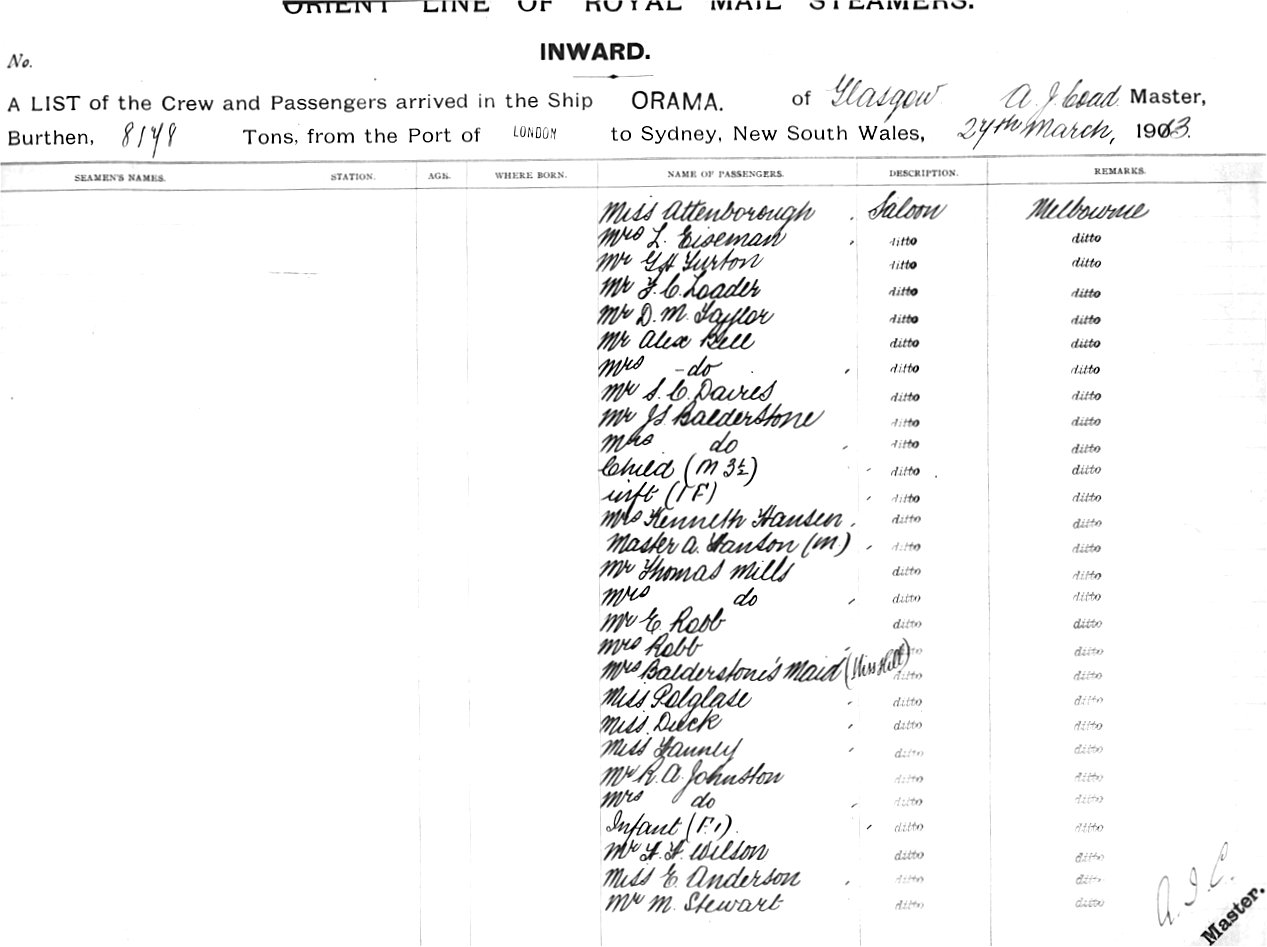 ORIENT LINE OF ROYAL MAIL STEAMERS.
No.
INWARD.
A LIST of the Crew and Passengers arrived in the Ship ORAMA. of Glasgow A. J. Coad Master,
Burthen, 8178 Tons, from the Port of LONDON to Sydney, New South Wales, 27th March, 1903.
SEAMEN'S NAMES. STATION. AGE. WHERE BORN. NAME OF PASSENGERS. DESCRIPTION. REMARKS.
Miss Attenborough Saloon Melbourne
Mrs L. Eiseman ditto ditto
Mr G H Turton ditto ditto
Mr F. C. Loader ditto ditto
Mr D. M. Taylor ditto ditto
Mr Alex Bell ditto ditto
Mrs - do ditto ditto
Mr S. C. Davies ditto ditto
Mr J S. Balderstone ditto ditto
Mrs do ditto ditto
Child (M 3½) ditto ditto
inft (1 F) ditto ditto
Mrs Kenneth Hansen ditto ditto
Master A. Hanson (M) ditto ditto
Mr Thomas Mills ditto ditto
Mrs do ditto ditto
Mr E Robb ditto ditto
Mrs Robb ditto ditto
Mrs Balderstone's Maid (Miss Hill) ditto ditto
Miss Polglase ditto ditto
Miss Duck ditto ditto
Miss ditto ditto
Mr R. A. Johnston ditto ditto
Mrs do ditto ditto
Infant (F.1). ditto ditto
Mr Wilson ditto ditto
Miss E. Anderson ditto ditto
Mr M. Stewart ditto ditto
A. J. C.
Master.